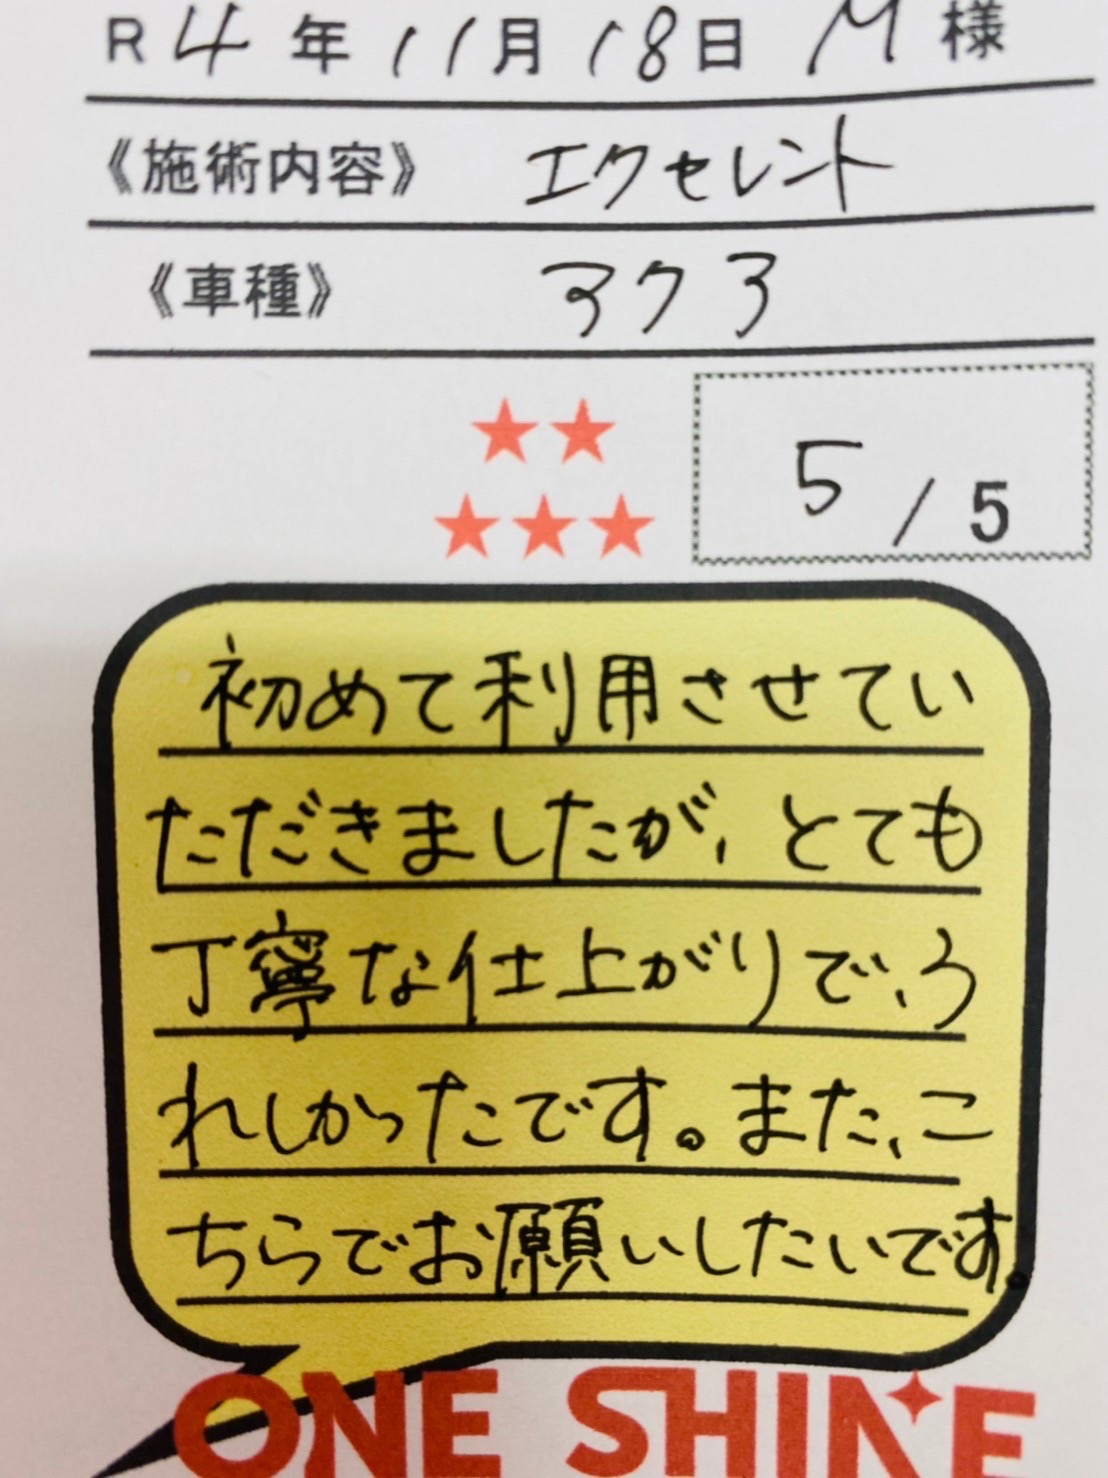 R 4 年 11 月 18 日 M 様
《施術内容》 エクセレント
《車種》 アクア
★★
★★★
5 / 5
初めて利用させてい
ただきましたが、とても
丁寧な仕上がりで、う
れしかったです。また、こ
ちらでお願いしたいです。
ONE SHINE